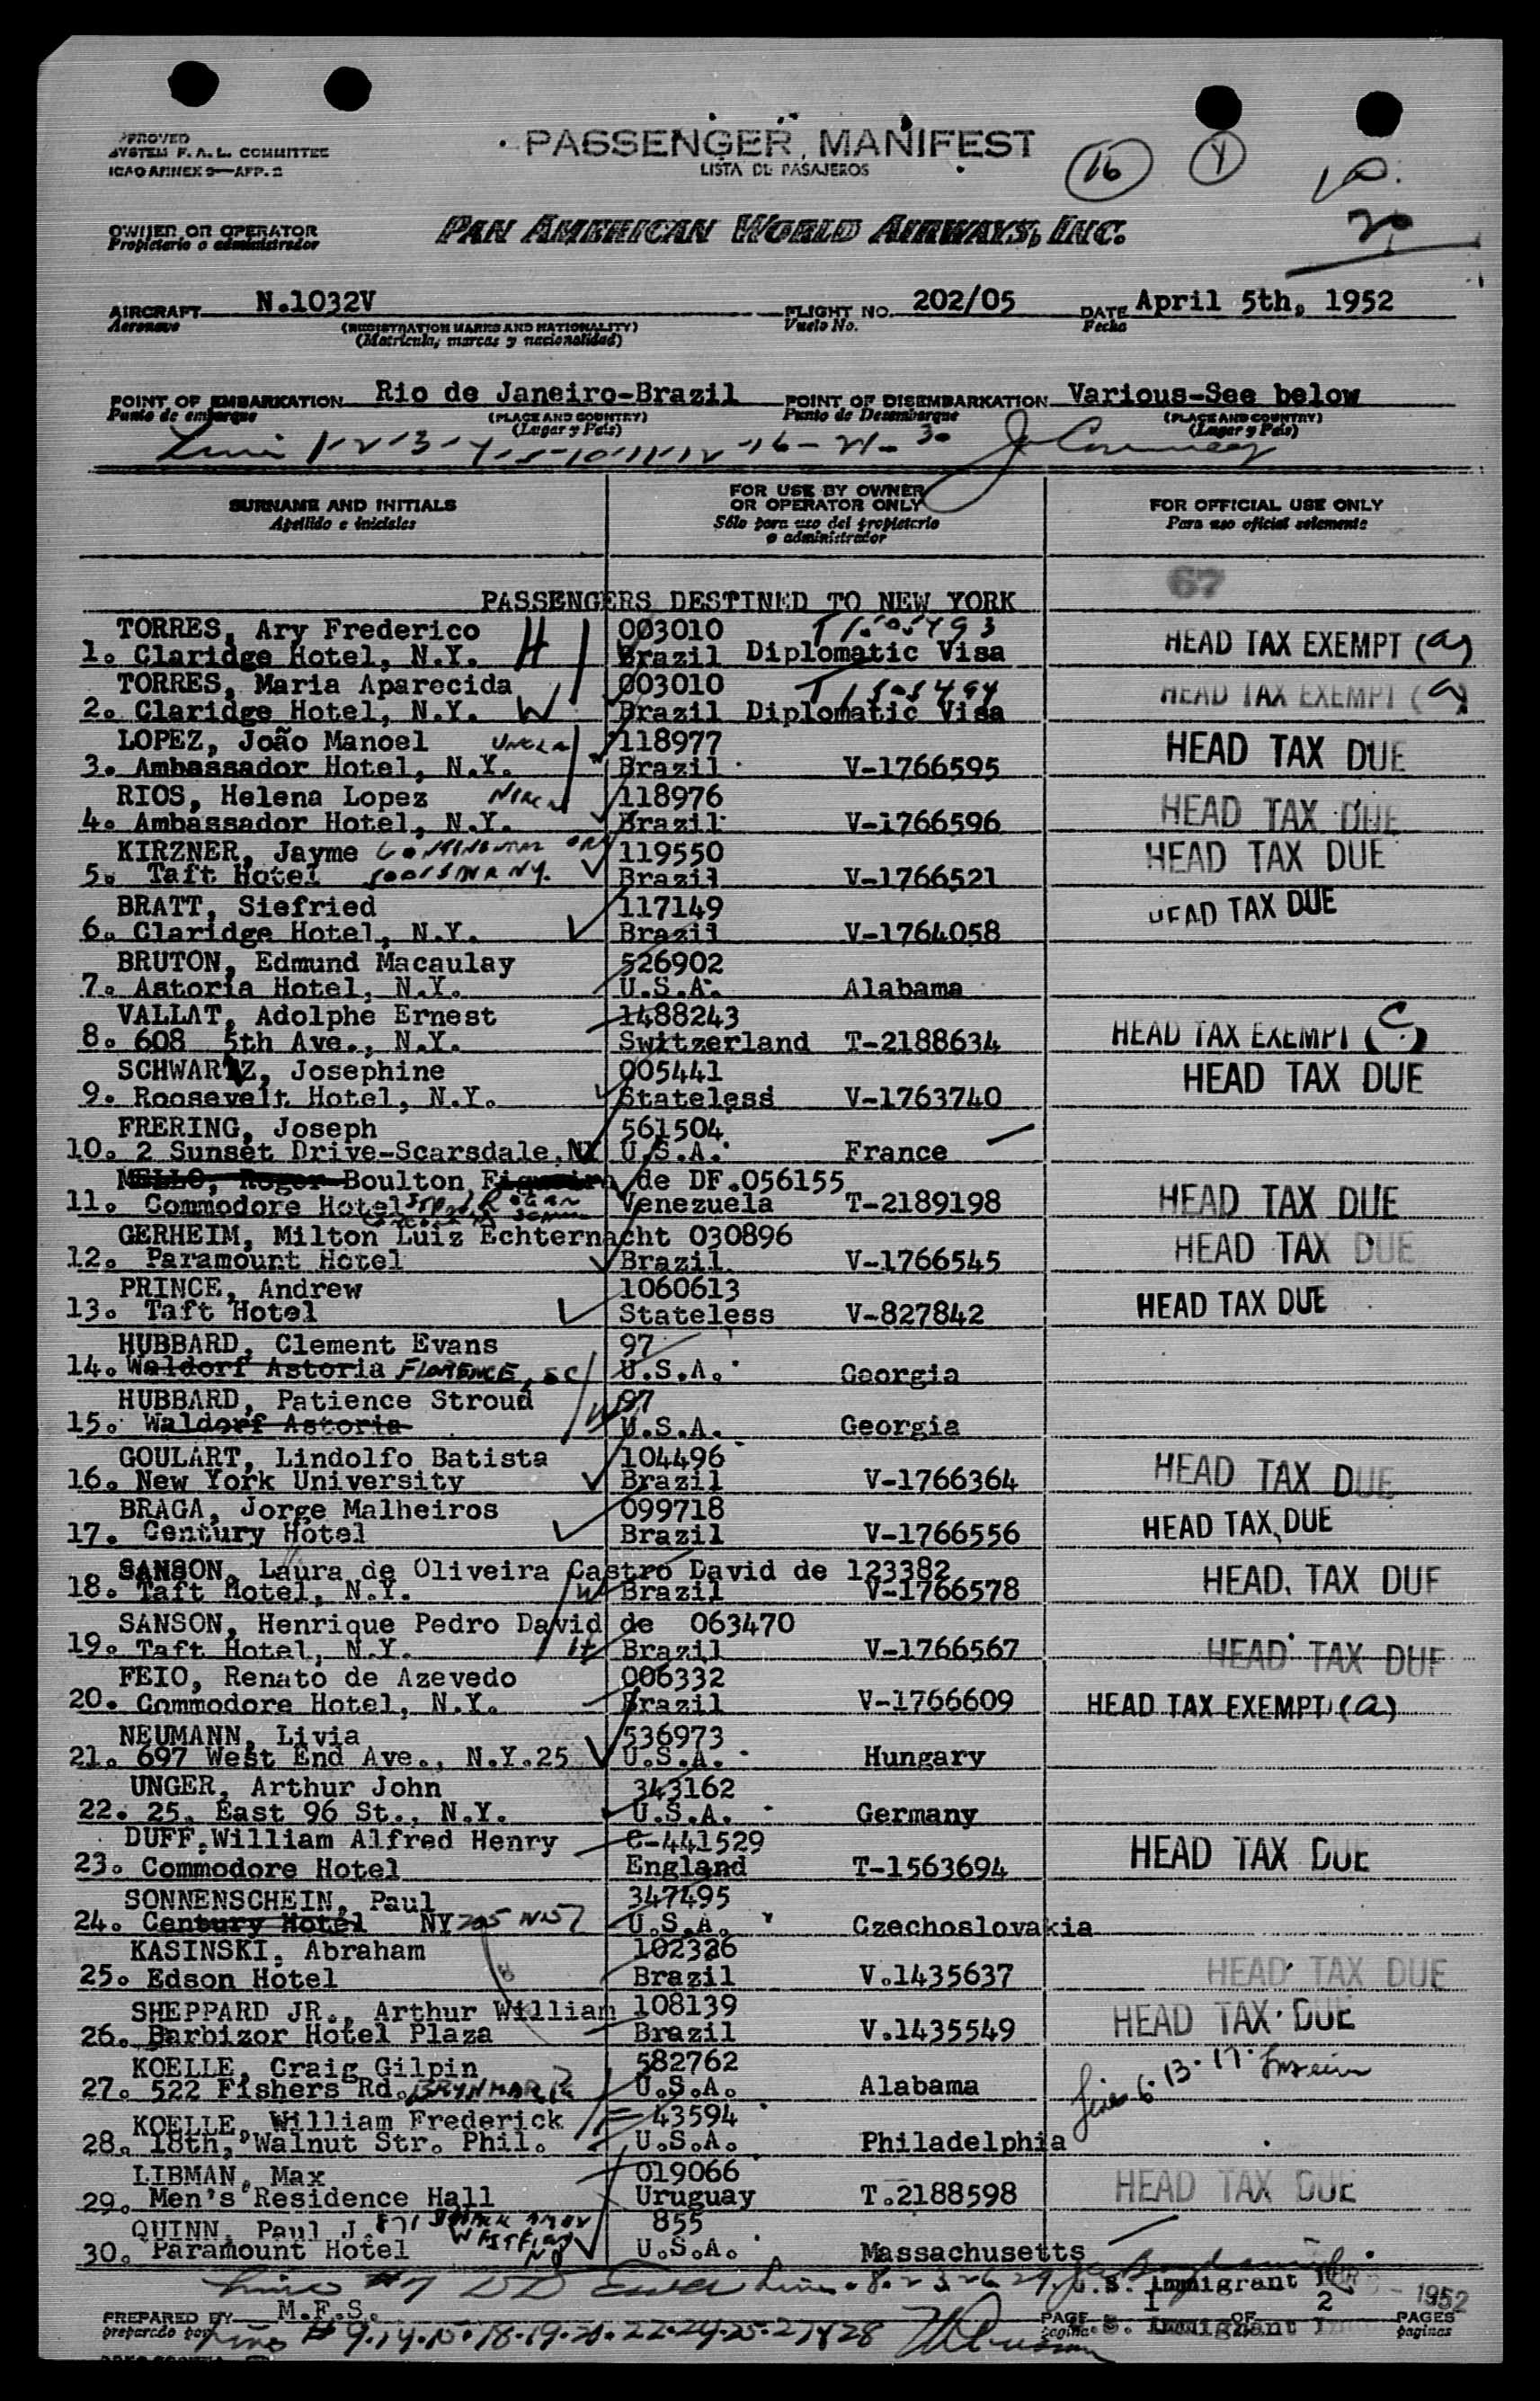 APPROVED
SYSTEM F. A. L. COMMITTEE
ICAO ANNEX 9—APP. 2
PASSENGER MANIFEST
LISTA DE PASAJEROS
16
Y
20
OWNER OR OPERATOR
Propietario o administrador
PAN AMERICAN WORLD AIRWAYS, INC.
AIRCRAFT N.1032V FLIGHT NO. 202/05 DATE April 5th, 1952
Aeronave (REGISTRATION MARKS AND NATIONALITY) Vuelo No. Fecha
(Matricula, marcas y nacionalidad)
POINT OF EMBARKATION Rio de Janeiro-Brazil POINT OF DISEMBARKATION Various-See below
Punto de embarque (PLACE AND COUNTRY) Punto de Desembarque (PLACE AND COUNTRY)
(Lugar y País) (Lugar y País)
1-2-3-4-5-10-11-12-16-21-30
SURNAME AND INITIALS FOR USE BY OWNER OR OPERATOR ONLY FOR OFFICIAL USE ONLY
Apellido e iniciales Sólo para uso del propietario o administrador Para uso oficial solamente
67
PASSENGERS DESTINED TO NEW YORK
TORRES, Ary Frederico H 003010 T1505493
1. Claridge Hotel, N.Y. Brazil Diplomatic Visa HEAD TAX EXEMPT (a)
TORRES, Maria Aparecida 003010 T1505494
2. Claridge Hotel, N.Y. W Brazil Diplomatic Visa HEAD TAX EXEMPT (a)
LOPEZ, João Manoel UNCLE 118977
3. Ambassador Hotel, N.Y. Brazil V-1766595 HEAD TAX DUE
RIOS, Helena Lopez NIECE 118976
4. Ambassador Hotel, N.Y. Brazil V-1766596 HEAD TAX DUE
KIRZNER, Jayme 119550
5. Taft Hotel Brazil V-1766521 HEAD TAX DUE
BRATT, Siefried 117149
6. Claridge Hotel, N.Y. Brazil V-1764058 HEAD TAX DUE
BRUTON, Edmund Macaulay 526902
7. Astoria Hotel, N.Y. U.S.A. Alabama
VALLAT, Adolphe Ernest 1488243
8. 608 5th Ave., N.Y. Switzerland T-2188634 HEAD TAX EXEMPT (C)
SCHWARTZ, Josephine 005441
9. Roosevelt Hotel, N.Y. Stateless V-1763740 HEAD TAX DUE
FRERING, Joseph 561504
10. 2 Sunset Drive-Scarsdale, NY U.S.A. France
MELLO, Roger Boulton Figueira de DF.056155
11. Commodore Hotel Venezuela T-2189198 HEAD TAX DUE
GERHEIM, Milton Luiz Echternacht 030896
12. Paramount Hotel Brazil V-1766545 HEAD TAX DUE
PRINCE, Andrew 1060613
13. Taft Hotel Stateless V-827842 HEAD TAX DUE
HUBBARD, Clement Evans 97
14. Waldorf Astoria FLORENCE, SC U.S.A. Georgia
HUBBARD, Patience Stroud 97
15. Waldorf Astoria W U.S.A. Georgia
GOULART, Lindolfo Batista 104496
16. New York University Brazil V-1766364 HEAD TAX DUE
BRAGA, Jorge Malheiros 099718
17. Century Hotel Brazil V-1766556 HEAD TAX DUE
SANSON, Laura de Oliveira Castro David de 123382
18. Taft Hotel, N.Y. W Brazil V-1766578 HEAD TAX DUE
SANSON, Henrique Pedro David de 063470
19. Taft Hotel, N.Y. H Brazil V-1766567 HEAD TAX DUE
FEIO, Renato de Azevedo 006332
20. Commodore Hotel, N.Y. Brazil V-1766609 HEAD TAX EXEMPT (a)
NEUMANN, Livia 536973
21. 697 West End Ave., N.Y.25 U.S.A. Hungary
UNGER, Arthur John 343162
22. 25, East 96 St., N.Y. U.S.A. Germany
DUFF, William Alfred Henry C-441529
23. Commodore Hotel England T-1563694 HEAD TAX DUE
SONNENSCHEIN, Paul 347495
24. Century Hotel NY 205 W57 U.S.A. Czechoslovakia
KASINSKI, Abraham 102326
25. Edson Hotel Brazil V.1435637 HEAD TAX DUE
SHEPPARD JR., Arthur William 108139
26. Barbizor Hotel Plaza Brazil V.1435549 HEAD TAX DUE
KOELLE, Craig Gilpin 582762
27. 522 Fishers Rd. BRYN MAR Pa U.S.A. Alabama
KOELLE, William Frederick 43594
28. 18th, Walnut Str. Phil. U.S.A. Philadelphia
LIBMAN, Max 019066
29. Men's Residence Hall Uruguay T.2188598 HEAD TAX DUE
QUINN, Paul J. 855
30. Paramount Hotel WESTFIELD NJ U.S.A. Massachusetts
U.S. Immigrant
PREPARED BY M.F.S. PAGE 1 OF 2 PAGES 1952
preparado por pagina paginas
# 9.14.15.18.19.20.22.24.25.27&28